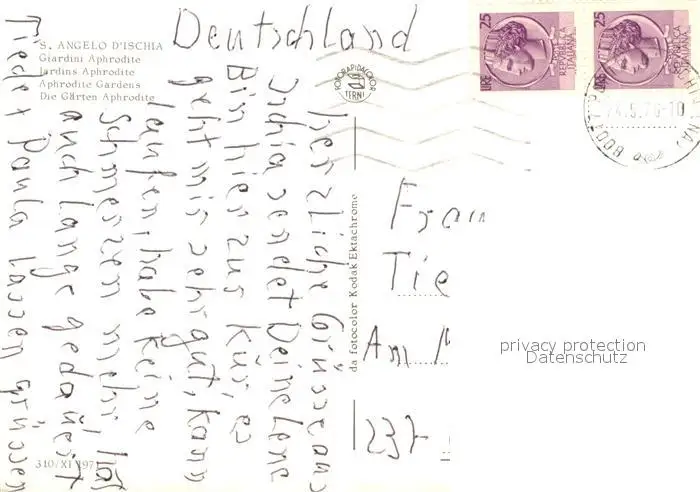 S. ANGELO D'ISCHIA
Giardini Aphrodite
Jardins Aphrodite
Aphrodite Gardens
Die Gärten Aphrodite
Deutschland
FOTORAPIDACOLOR
TERNI
LIRE 25
POSTE
REPUBBLICA
ITALIANA
LIRE 25
REPUBBLICA
ITALIANA
herzliche Grüsse aus
Ischia sendet Deine Lene
Bin hier zur Kur, es
geht mir sehr gut, kann
laufen, habe keine
Schmerzen mehr, hat
auch lange gedauert
Tiedet Paula lassen grüssen
da fotocolor Kodak Ektachrome
Frau
Tie
Am
237
privacy protection
Datenschutz
310/XI 1971